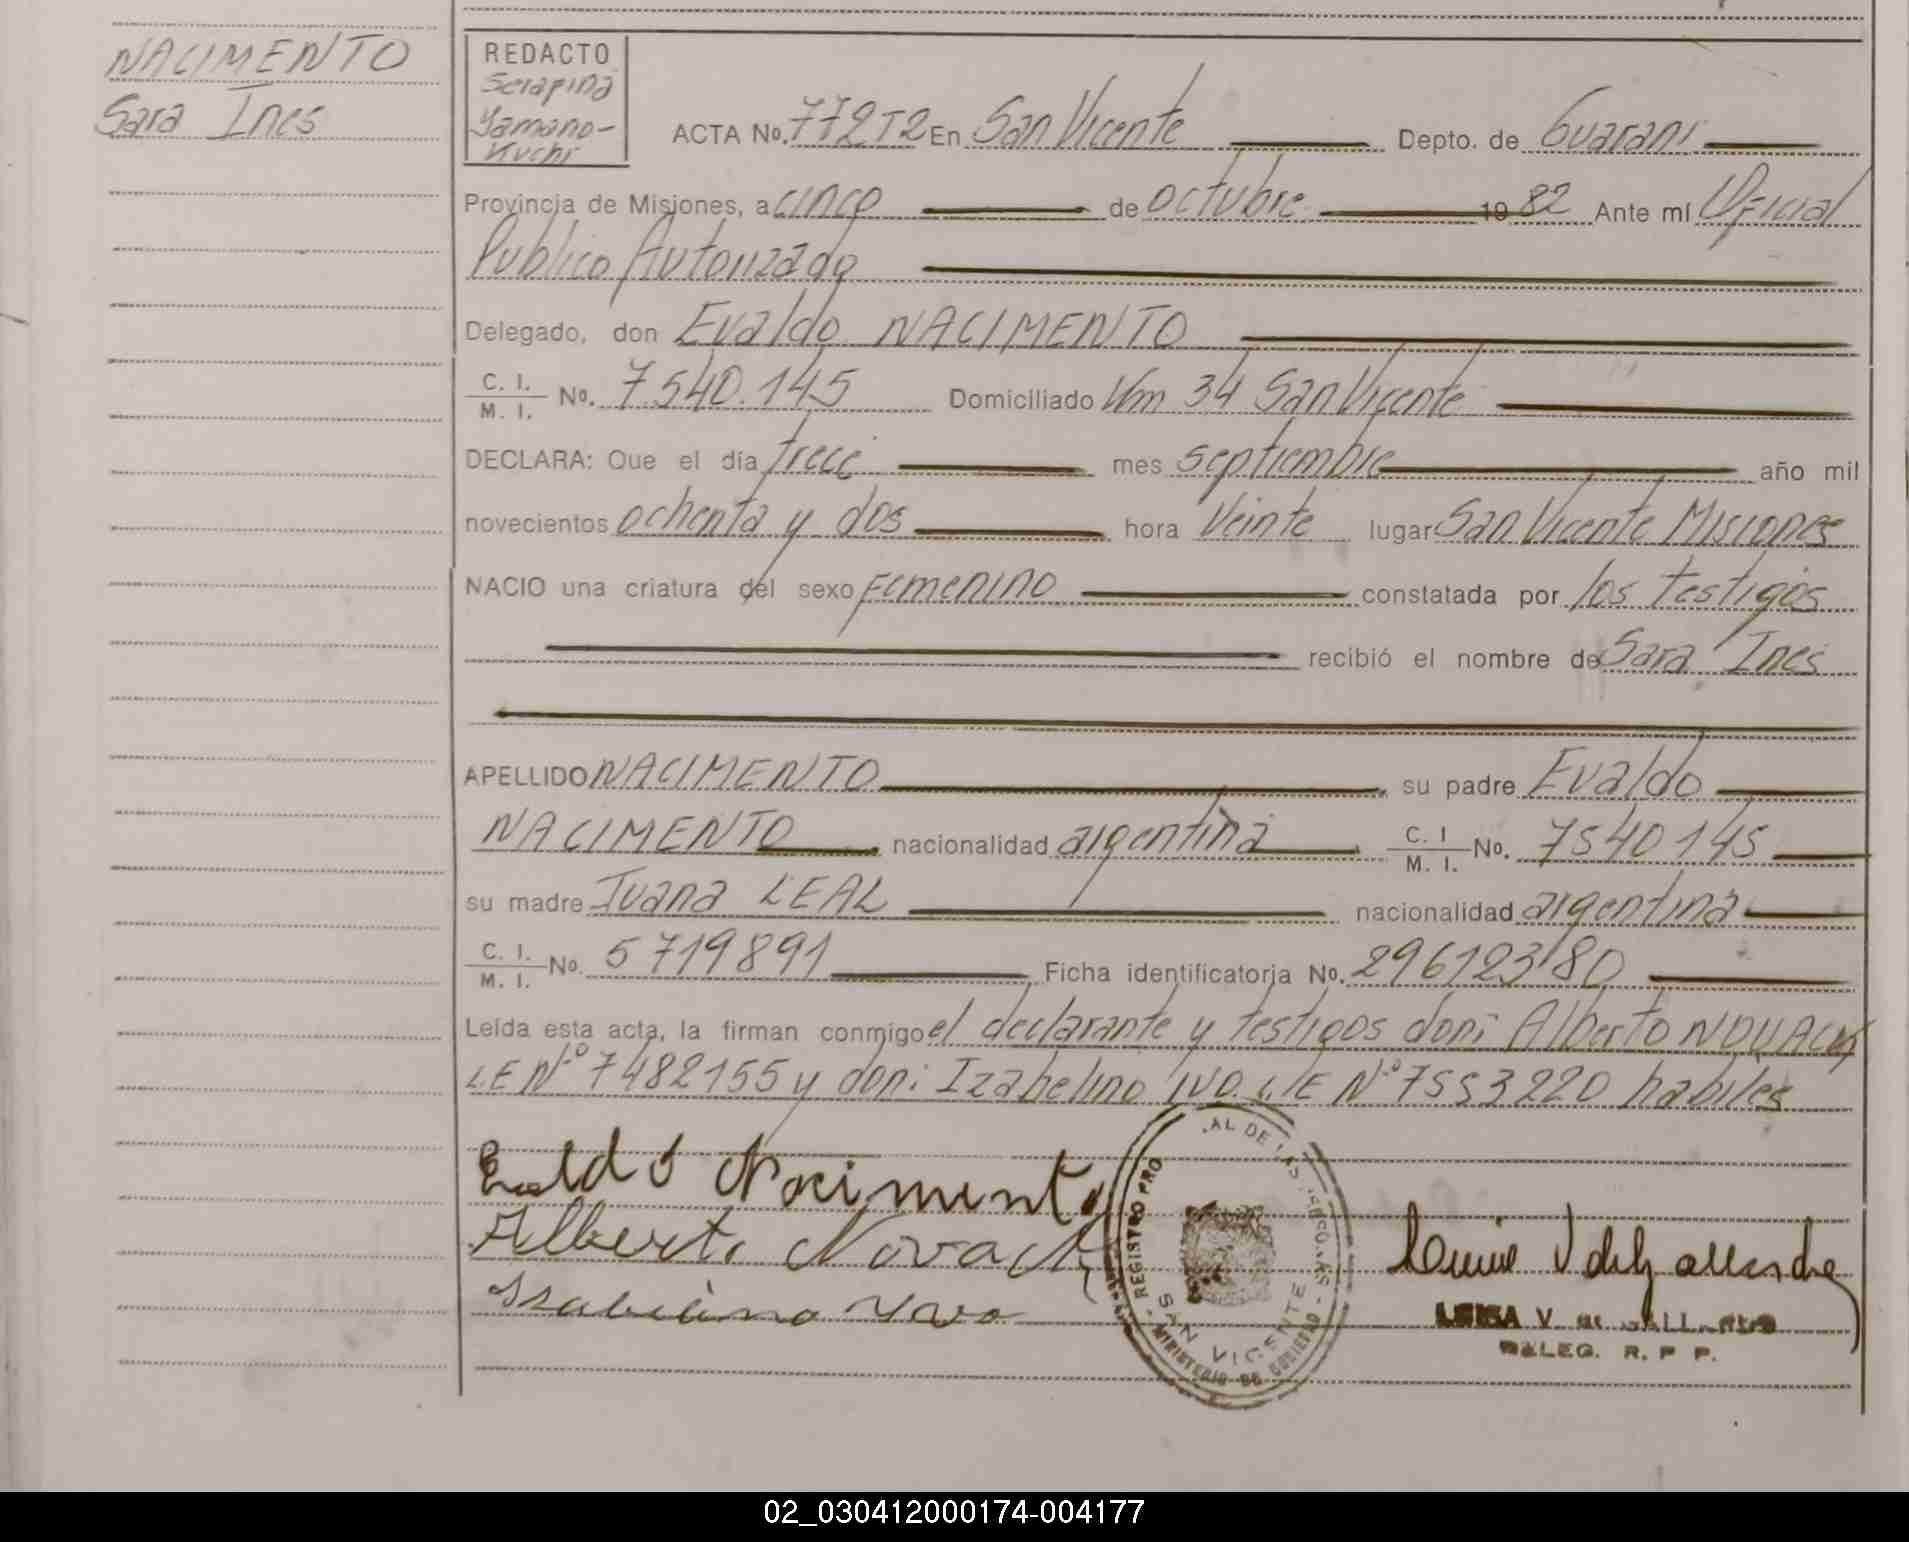 NACIMENTO
Sara Ines
REDACTO
Serapina
Yamano-
Kuchi
ACTA No. 772T2 En San Vicente Depto. de Guarani
Provincia de Misiones, a cinco de octubre 19 82 Ante mí Oficial
Publico Autorizado
Delegado, don Evaldo NACIMENTO
C. I. M. I. No. 7.540.145 Domiciliado Km 34 San Vicente
DECLARA: Que el día trece mes septiembre año mil
novecientos ochenta y dos hora veinte lugar San Vicente Misiones
NACIO una criatura del sexo Femenino constatada por los testigos
recibió el nombre de Sara Ines
APELLIDO NACIMENTO su padre Evaldo
NACIMENTO nacionalidad argentina C. I M. I. No. 7540145
su madre Juana LEAL nacionalidad argentina
C. I. M. I. No. 5719891 Ficha identificatoria No. 296123/80
Leída esta acta, la firman conmigo el declarante y testigos don: Alberto
LE Nº 7482155 y don: Izabelino IVO. L.E Nº 7553220 habiles
Evaldo Nacimento
Alberto Novach
Izabelino Ivo
REGISTRO PRO AL DE LAS PERSONAS
SAN VICENTE
MINISTERIO DE GOBIERNO
DELEG. R. P P.
02_030412000174-004177